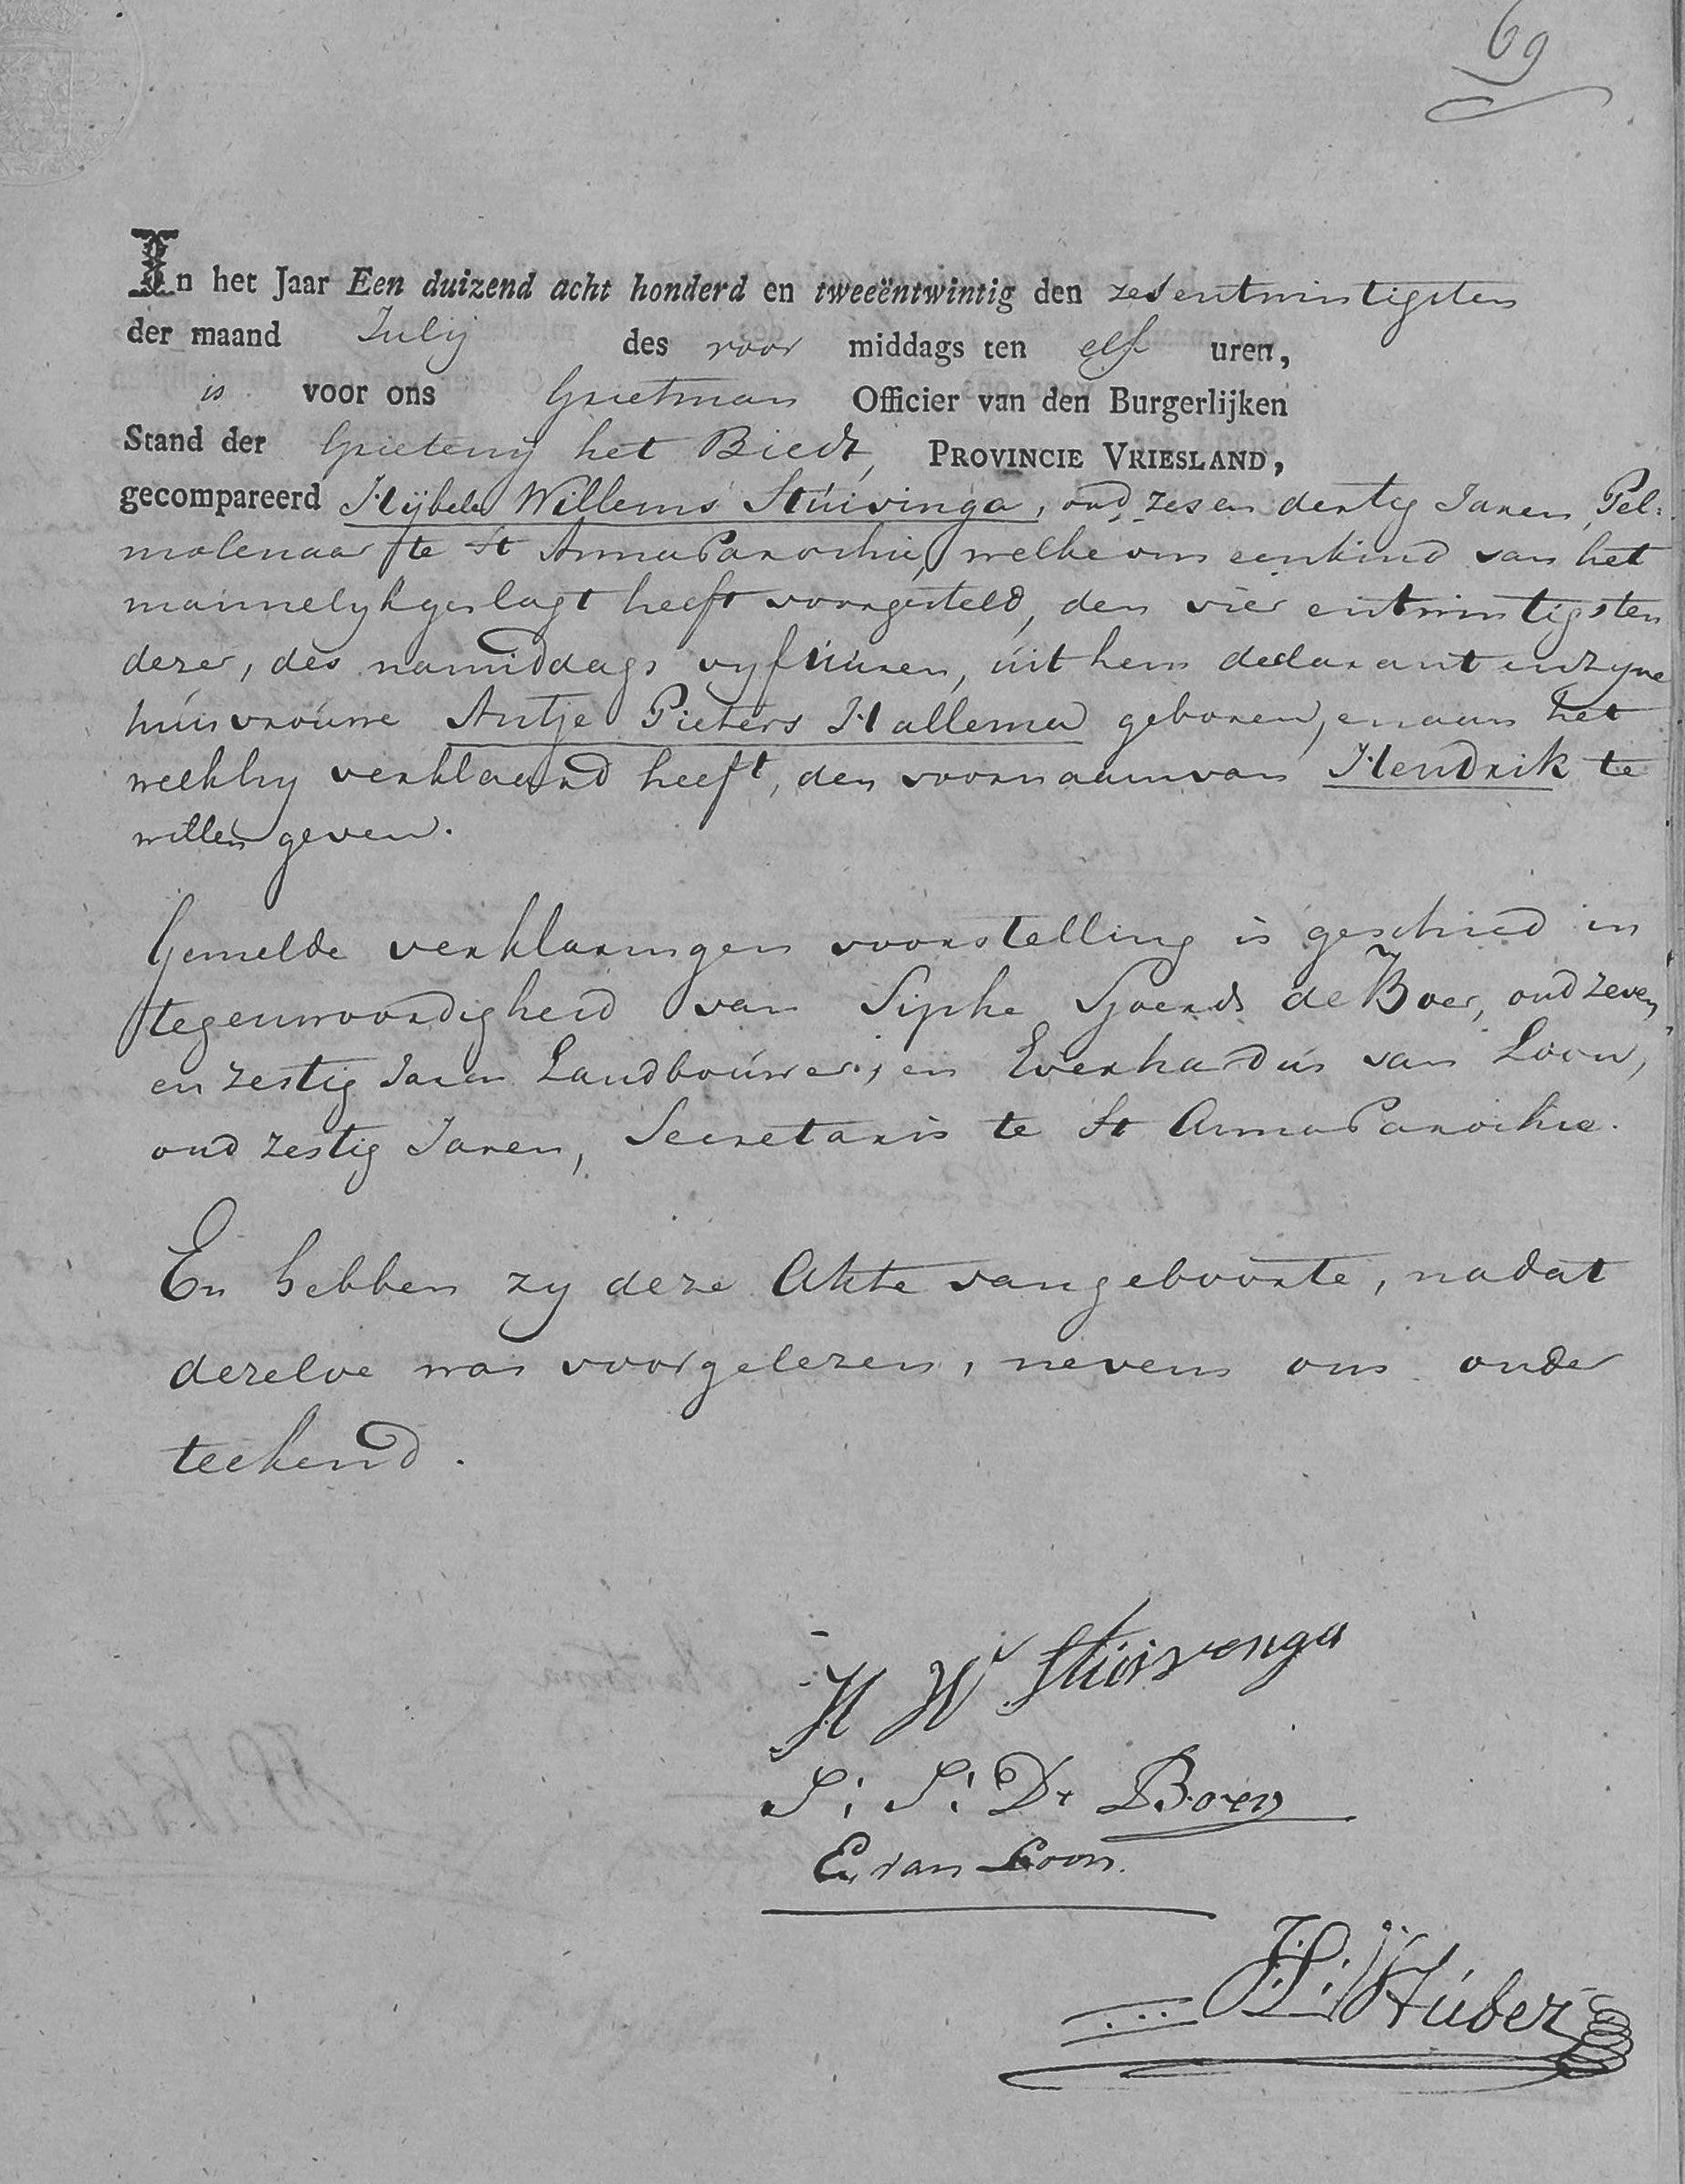 69
In het Jaar Een duizend acht honderd en tweeëntwintig den zesentwintigsten
der maand Julij des voor middags ten elf uren,
is voor ons Grietman Officier van den Burgerlijken
Stand der Grieteny het Bildt, PROVINCIE VRIESLAND,
gecompareerd Hijbele Willems Stuivinga, oud zes en dertig Jaren, Pel:
molenaar te St Anna Parochie, welke ons een kind van het
mannelyk geslagt heeft voorgesteld, den vier entwintigsten
dezer, des namiddags vyf uuren, uit hem declarant en zyne
huisvrouwe Antje Pieters Hallema geboren, en aan het
welk hy verklaard heeft, den voornaam van Hendrik te
willen geven.
Gemelde verklaring en voorstelling is geschied in
tegenwoordigheid van Sipke Sjoerds de Boer, oud zeven
en zestig Jaren Landbouwer, en Everhardus van Loon,
oud zestig Jaren, Secretaris te St Anna Parochie.
En hebben zy deze Akte van geboorte, nadat
dezelve was voorgelezen, nevens ons onder
teekend.
H W Stuivenga
S: S: De Boer
E. van Loon.
Huber